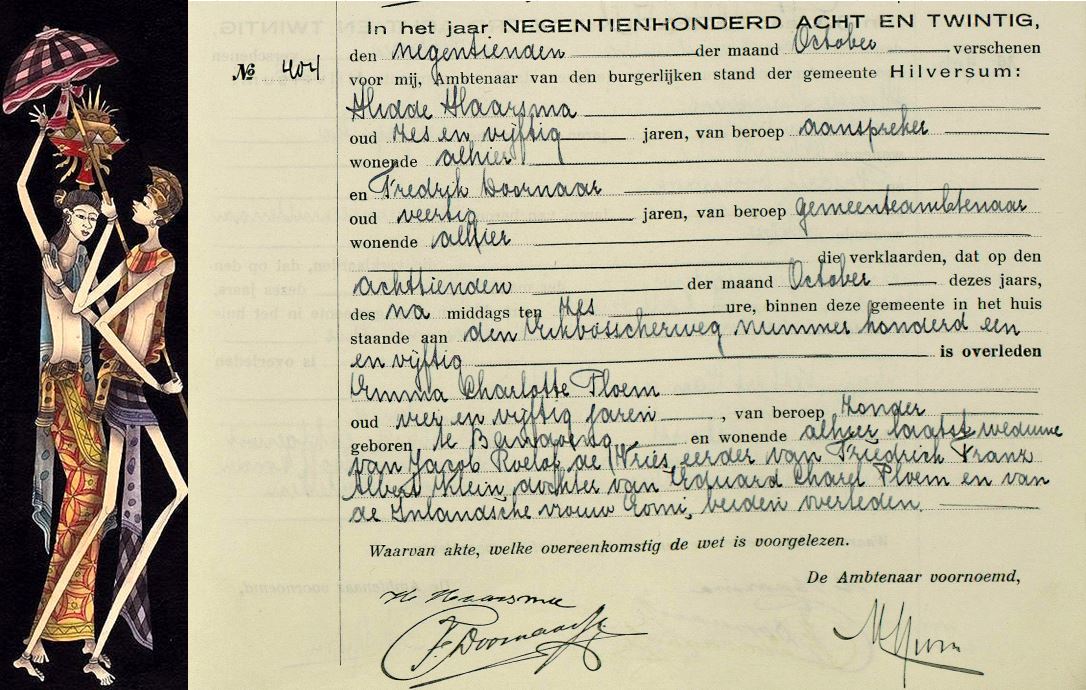 In het jaar NEGENTIENHONDERD ACHT EN TWINTIG,
den negentienden der maand October verschenen
№ 404
voor mij, Ambtenaar van den burgerlijken stand der gemeente Hilversum:
Hidde Haarsma
oud zes en vijftig jaren, van beroep aanspreker
wonende alhier
en Fredrik Doornaar
oud veertig jaren, van beroep gemeenteambtenaar
wonende alhier
die verklaarden, dat op den
achttienden der maand October dezes jaars,
des na middags ten zes ure, binnen deze gemeente in het huis
staande aan den Eikbosscherweg nummer honderd een
en vijftig is overleden
Emma Charlotte Ploem
oud vier en vijftig jaren, van beroep zonder
geboren te Bandoeng en wonende alhier laatst weduwe
van Jacob Roelof de Vries, eerder van Friedrich Franz
Albert Klein, dochter van Eduard Charel Ploem en van
de Inlandsche vrouw Eomi, beiden overleden.
Waarvan akte, welke overeenkomstig de wet is voorgelezen.
De Ambtenaar voornoemd,
H. Haarsma
F. Doornaar